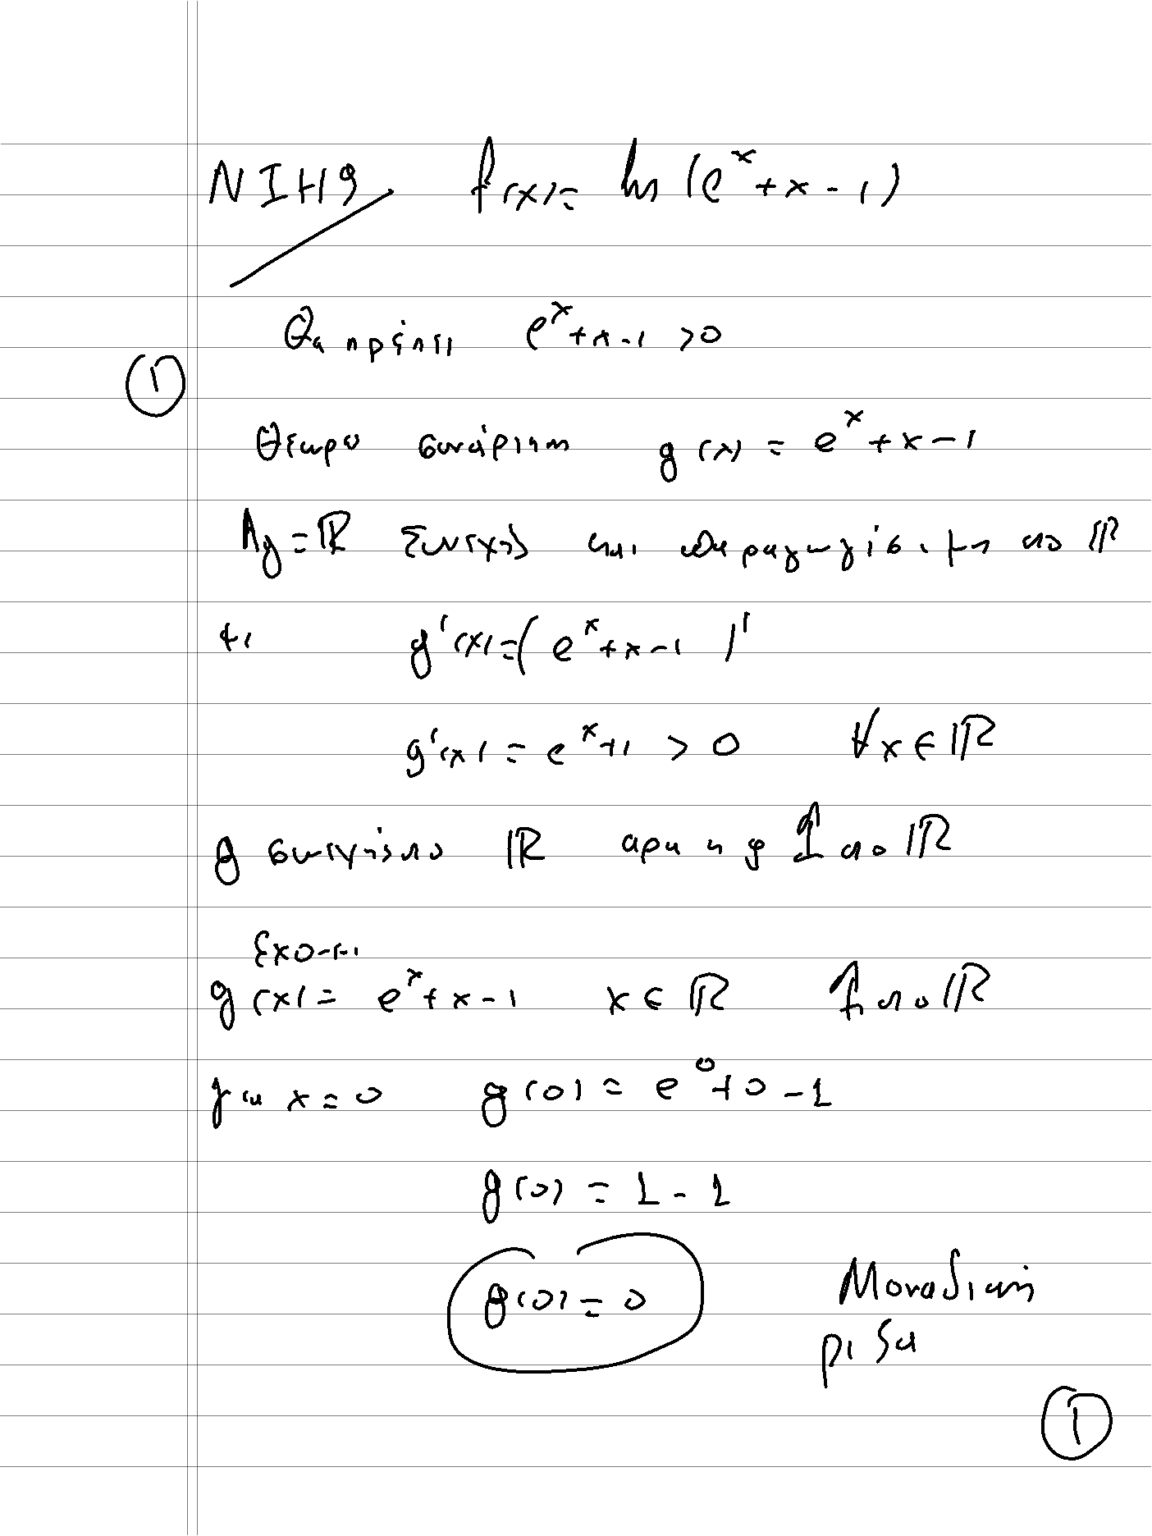 ΝΙΗ9 f(x) = ln(e^x + x - 1)
Θα πρέπει e^x + x - 1 > 0
①
Θεωρώ συνάρτηση g(x) = e^x + x - 1
Ag = ℝ Συνεχής και παραγωγίσιμη στο ℝ
με g'(x) = (e^x + x - 1)'
g'(x) = e^x + 1 > 0 ∀x ∈ ℝ
g συνεχής στο ℝ άρα η g ↑ στο ℝ
Έχουμε
g(x) = e^x + x - 1 x ∈ ℝ ↑ στο ℝ
για x = 0 g(0) = e^0 + 0 - 1
g(0) = 1 - 1
g(0) = 0 Μοναδική
ρίζα
①